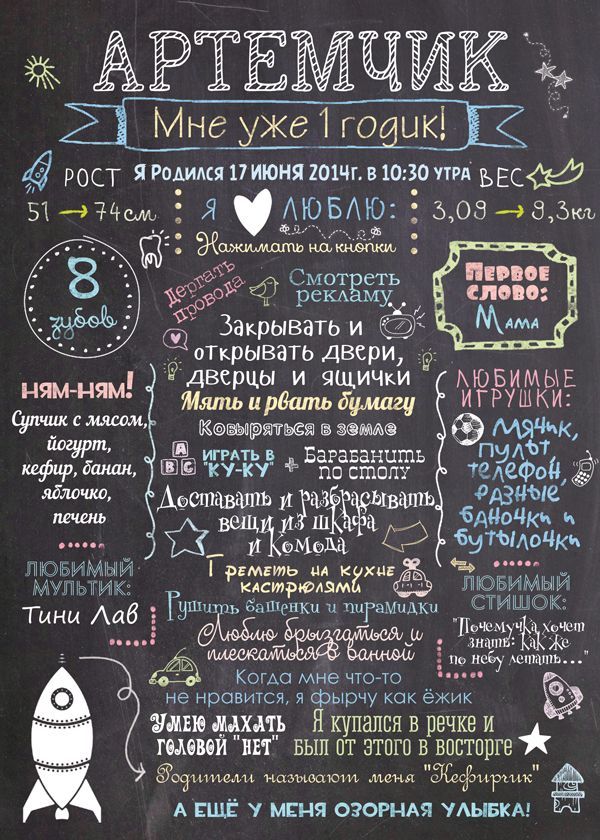 АРТЕМЧИК
Мне уже 1 годик!
Я РОДИЛСЯ 17 ИЮНЯ 2014г. В 10:30 УТРА
РОСТ
51 → 74см
ВЕС
3,09 → 9,3кг
Я ЛЮБЛЮ:
Нажимать на кнопки
8
зубов
Дергать
провода
Смотреть
рекламу
Первое
слово:
Мама
Закрывать и
открывать двери,
дверцы и ящички
Мять и рвать бумагу
Ковыряться в земле
A B C
ИГРАТЬ В
"КУ-КУ"
+
Барабанить
по столу
Доставать и разбрасывать
вещи из шкафа
и комода
Греметь на кухне
кастрюлями
Рушить башенки и пирамидки
Люблю брызгаться и
плескаться в ванной
НЯМ-НЯМ!
Супчик с мясом,
йогурт,
кефир, банан,
яблочко,
печень
ЛЮБИМЫЕ
ИГРУШКИ:
Мячик,
пульт,
телефон,
разные
баночки и
бутылочки
ЛЮБИМЫЙ
МУЛЬТИК:
Тини Лав
ЛЮБИМЫЙ
СТИШОК:
"Почемучка хочет
знать: как же
по небу летать..."
Когда мне что-то
не нравится, я фырчу как ёжик
Умею махать
головой "нет"
Я купался в речке и
был от этого в восторге
Родители называют меня "Кефирчик"
А ЕЩЁ У МЕНЯ ОЗОРНАЯ УЛЫБКА!